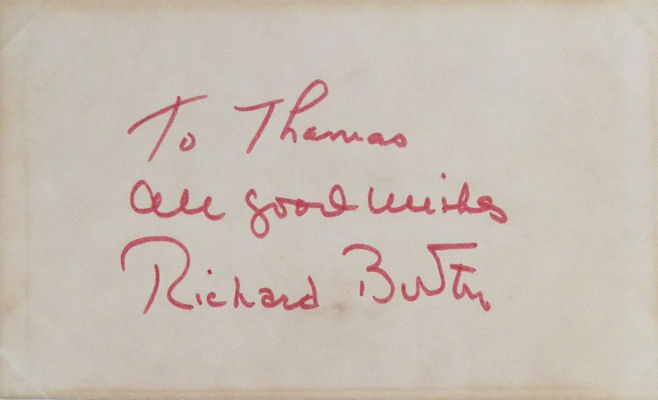 To Thomas
All good wishes
Richard Burton